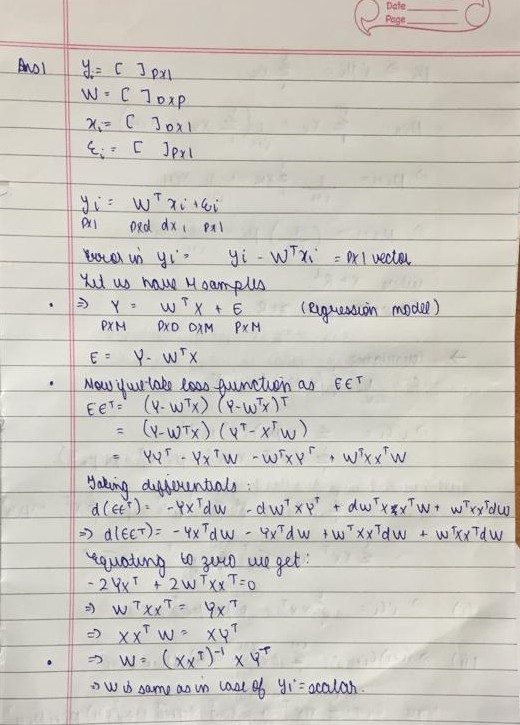 Date
Page
Ans1 Yi = [ ]P×1
W = [ ]D×P
xi = [ ]D×1
Ɛi = [ ]P×1
yi = Wᵀxi + Ɛi
P×1 P×d d×1 P×1
Error in yi = yi - Wᵀxi = P×1 vector
Let us have M samples
• ⇒ Y = WᵀX + E (Regression model)
P×M P×D D×M P×M
E = Y - WᵀX
• Now if we take loss function as EEᵀ
EEᵀ = (Y-WᵀX) (Y-WᵀX)ᵀ
= (Y-WᵀX) (Yᵀ-XᵀW)
= YYᵀ - YXᵀW - WᵀXYᵀ + WᵀXXᵀW
Taking differentials:
d(EEᵀ) = -YXᵀdW - dWᵀXYᵀ + dWᵀXXᵀW + WᵀXXᵀdW
⇒ d(EEᵀ) = -YXᵀdW - YXᵀdW + WᵀXXᵀdW + WᵀXXᵀdW
Equating to zero we get:
-2YXᵀ + 2WᵀXXᵀ = 0
⇒ WᵀXXᵀ = YXᵀ
⇒ XXᵀW = XYᵀ
• ⇒ W = (XXᵀ)⁻¹ XYᵀ
⇒ W is same as in case of yi = scalar.